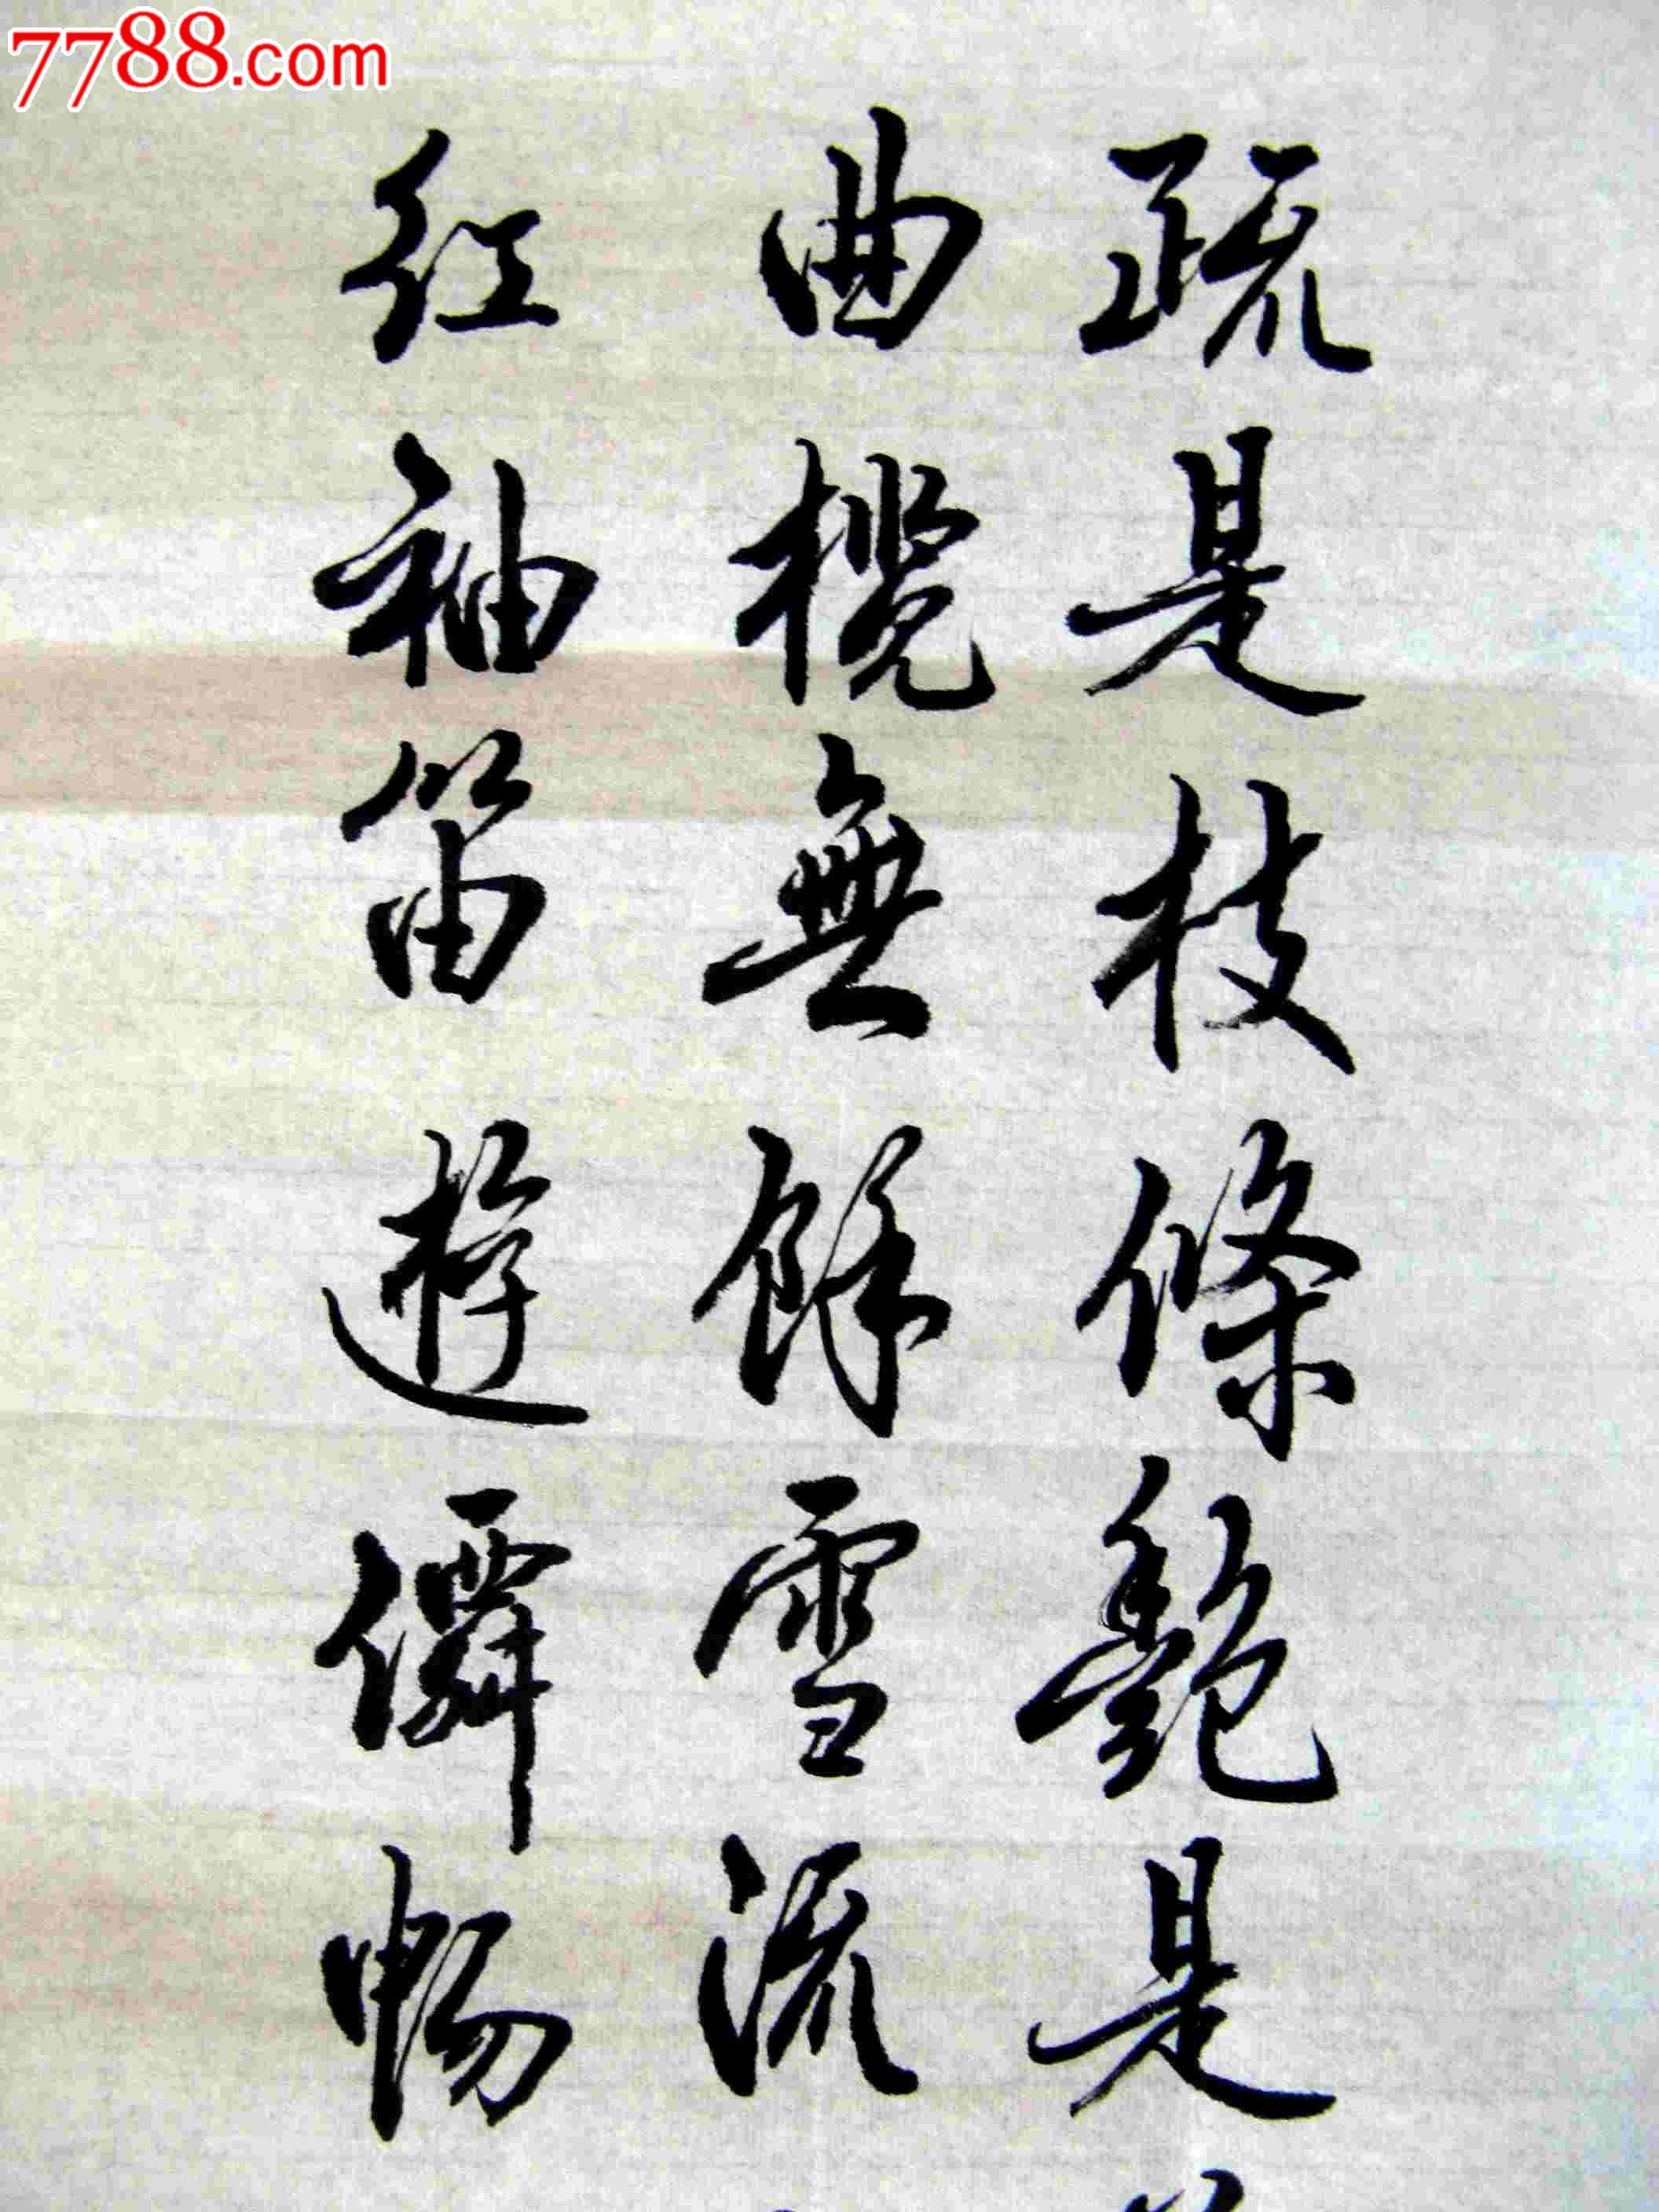 7788.com
疏是枝條艷是
曲榄無餘雪流
红袖笛遊僊暢